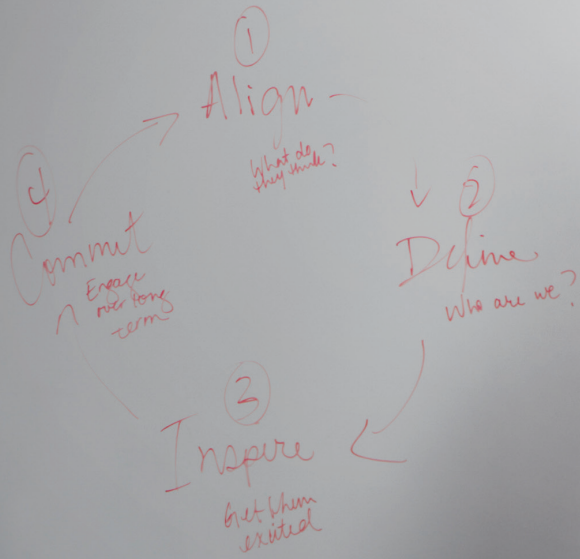 1
Align
What do
they think?
2
Define
Who are we?
3
Inspire
Get them
excited
4
Commit
Engage
over long
term